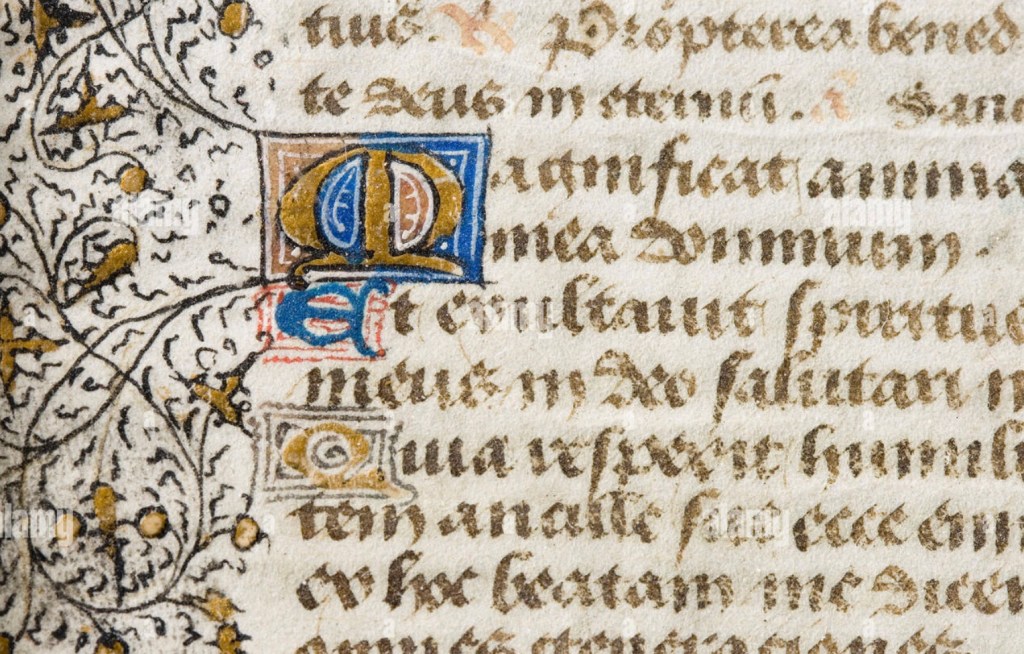 tuus. V. Propterea bened
te deus in eternũ. a Sanc
Magnificat anima
mea dominum.
Et exultauit spiritus
meus in deo salutari m
Quia respexit humili
tem ancille sue ecce eni
ex hoc beatam me dicen
omnes generationes.